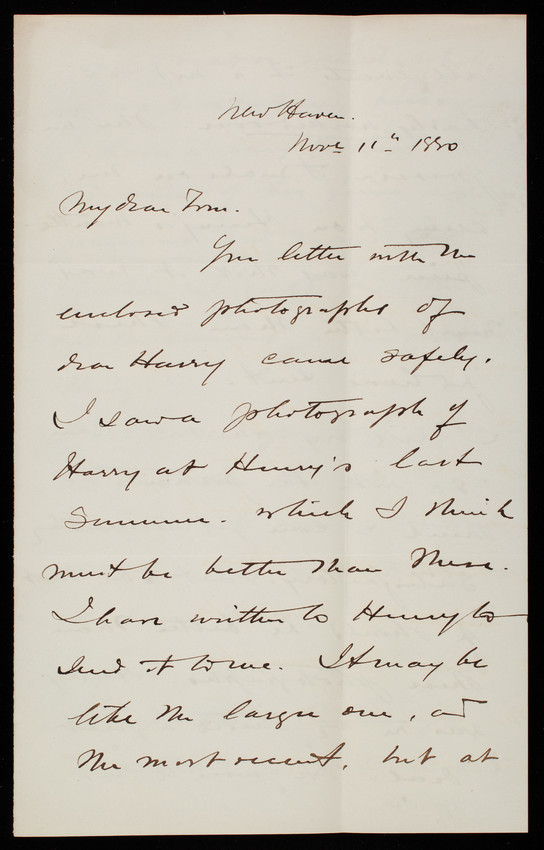 New Haven.
Nov 11th 1880
My dear Tom.
Your letter with the
enclosed photographs of
dear Harry came safely.
I saw a photograph of
Harry at Henry's last
summer. which I think
must be better than these.
I have written to Henry to
send it to me. It may be
like the larger one, and
the most recent, but at